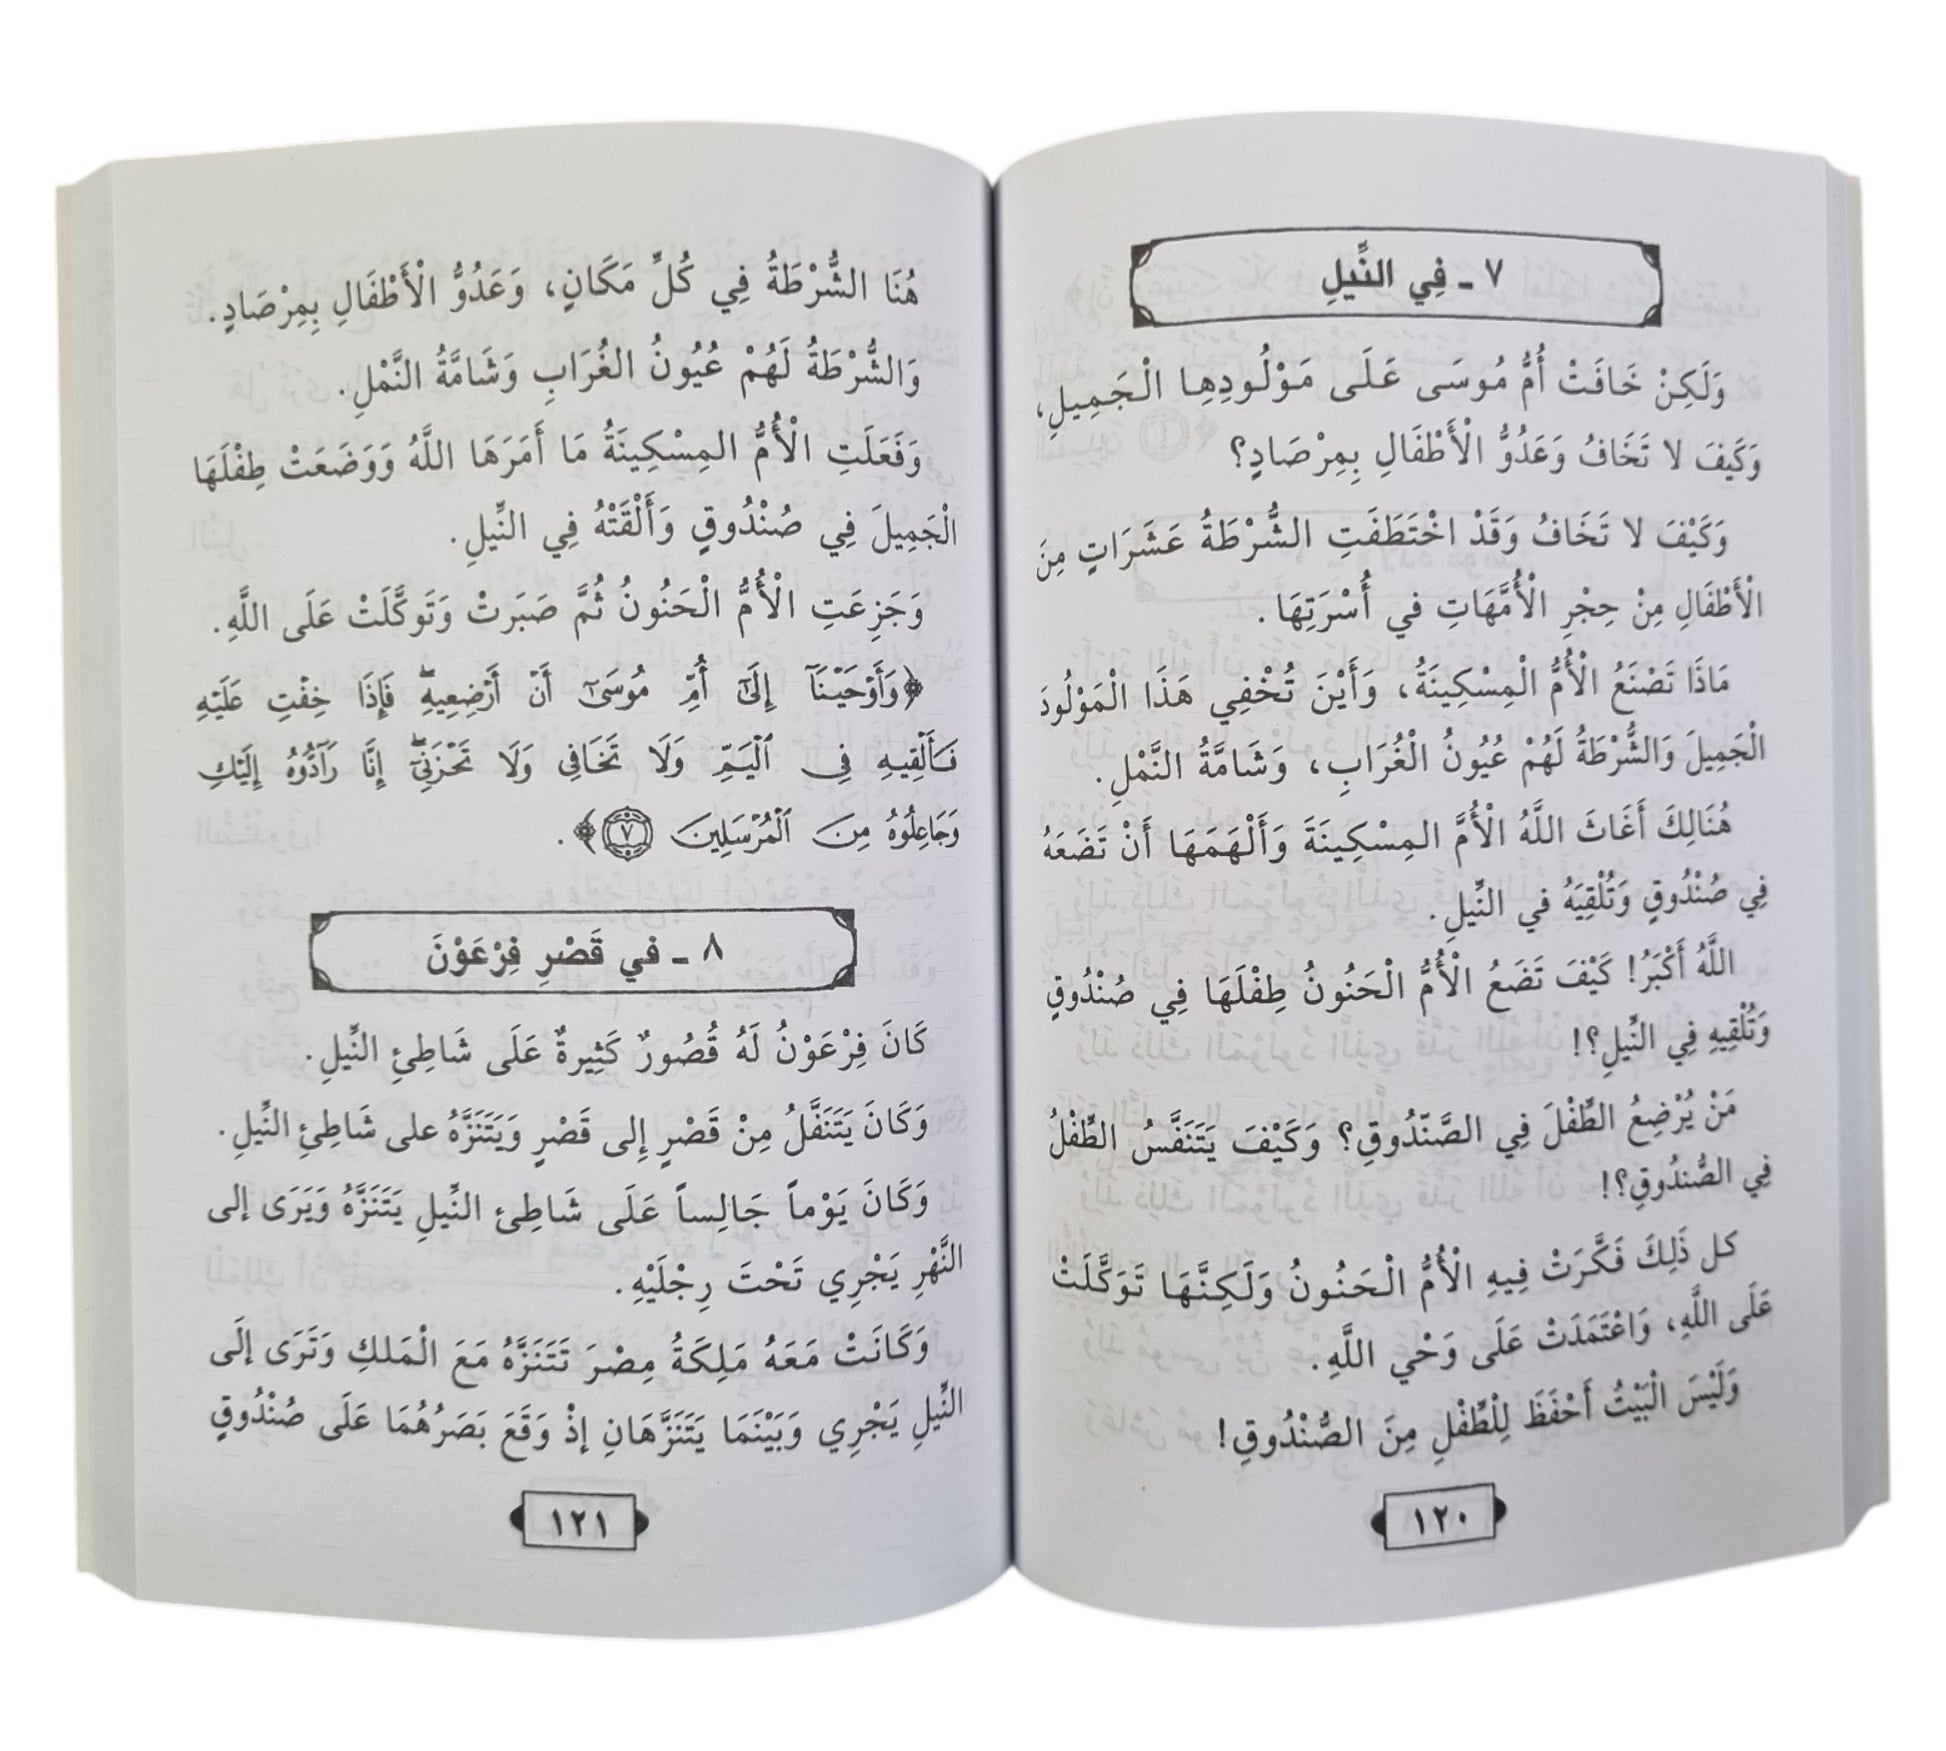 ٧ - فِي النِّيلِ
وَلَكِنْ خَافَتْ أُمُّ مُوسَى عَلَى مَوْلُودِهِا الْجَمِيلِ،
وَكَيفَ لا تَخَافُ وَعَدُوُّ الْأَطْفَالِ بِمِرْصَادٍ؟
وَكَيْفَ لا تَخَافُ وَقَدْ اخْتَطَفَتِ الشُّرْطَةُ عَشَرَاتٍ مِنَ
الْأَطْفَالِ مِنْ حِجْرِ الْأُمَّهَاتِ في أُسْرَتِهَا.
مَاذَا تَصْنَعُ الْأُمُّ الْمِسْكِينَةُ، وَأَيْنَ تُخْفِي هَذَا الْمَوْلُودَ
الْجَمِيلَ وَالشُّرْطَةُ لَهُمْ عُيُونُ الْغُرَابِ، وَشَامَّةُ النَّمْلِ.
هُنَالِكَ أَغَاثَ اللَّهُ الْأُمَّ المِسْكِينَةَ وَأَلْهَمَهَا أَنْ تَضَعَهُ
فِي صُنْدُوقٍ وَتُلْقِيَهُ في النِّيلِ.
اللَّهُ أَكْبَرُ! كَيْفَ تَضَعُ الْأُمُّ الْحَنُونُ طِفْلَهَا فِي صُنْدُوقٍ
وَتُلْقِيهِ فِي النِّيلِ؟!
مَنْ يُرْضِعُ الطِّفْلَ فِي الصَّنْدُوقِ؟ وَكَيْفَ يَتَنَفَّسُ الطِّفْلُ
فِي الصُّندُوقِ؟!
كل ذَلِكَ فَكَّرَتْ فِيهِ الْأُمُّ الْحَنُونُ وَلَكِنَّهَا تَوَكَّلَتْ
عَلَى اللَّهِ، وَاعْتَمَدَتْ عَلَى وَحْيِ اللَّهِ.
وَلَيْسَ الْبَيْتُ أَحْفَظَ لِلْطِّفْلِ مِنَ الصُّنْدُوقِ!
١٢٠
هُنَا الشُّرْطَةُ فِي كُلِّ مَكَانٍ، وَعَدُوُّ الْأَطْفَالِ بِمِرْصَادٍ.
وَالشُّرْطَةُ لَهُمْ عُيُونُ الغُرَابِ وَشَامَّةُ النَّمْلِ.
وَفَعَلَتِ الْأُمُّ المِسْكِينَةُ مَا أَمَرَهَا اللَّهُ وَوَضَعَتْ طِفْلَهَا
الْجَمِيلَ فِي صُنْدُوقٍ وَأَلْقَتْهُ فِي النِّيلِ.
وَجَزِعَتِ الْأُمُّ الْحَنُونُ ثُمَّ صَبَرَتْ وَتَوكَّلَتْ عَلَى اللَّهِ.
﴿وَأَوْحَيْنَآ إِلَىٰٓ أُمِّ مُوسَىٰٓ أَنْ أَرْضِعِيهِۖ فَإِذَا خِفْتِ عَلَيْهِ
فَأَلْقِيهِ فِى ٱلْيَمِّ وَلَا تَخَافِى وَلَا تَحْزَنِىٓۖ إِنَّا رَآدُّوهُ إِلَيْكِ
وَجَاعِلُوهُ مِنَ ٱلْمُرْسَلِينَ ٧﴾.
٨ - في قَصْرِ فِرْعَوْنَ
كَانَ فِرْعَوْنُ لَهُ قُصُورٌ كَثِيرةٌ عَلَى شَاطِئِ النِّيلِ.
وَكَانَ يَتَنَقَّلُ مِنْ قَصْرٍ إِلى قَصْرٍ وَيَتَنَزَّهُ على شَاطِئِ النِّيلِ.
وَكَانَ يَوْماً جَالِساً عَلَى شَاطِئِ النِّيلِ يَتَنَزَّهُ وَيَرَى إلى
النَّهْرِ يَجْرِي تَحْتَ رِجْلَيْهِ.
وَكَانَتْ مَعَهُ مَلِكَةُ مِصْرَ تَتَنَزَّهُ مَعَ الْمَلكِ وَتَرَى إلَى
النِّيلِ يَجْرِي وَبَيْنَمَا يَتَنَزَّهَانِ إذْ وَقَعَ بَصَرُهُمَا عَلَى صُنْدُوقٍ
١٢١